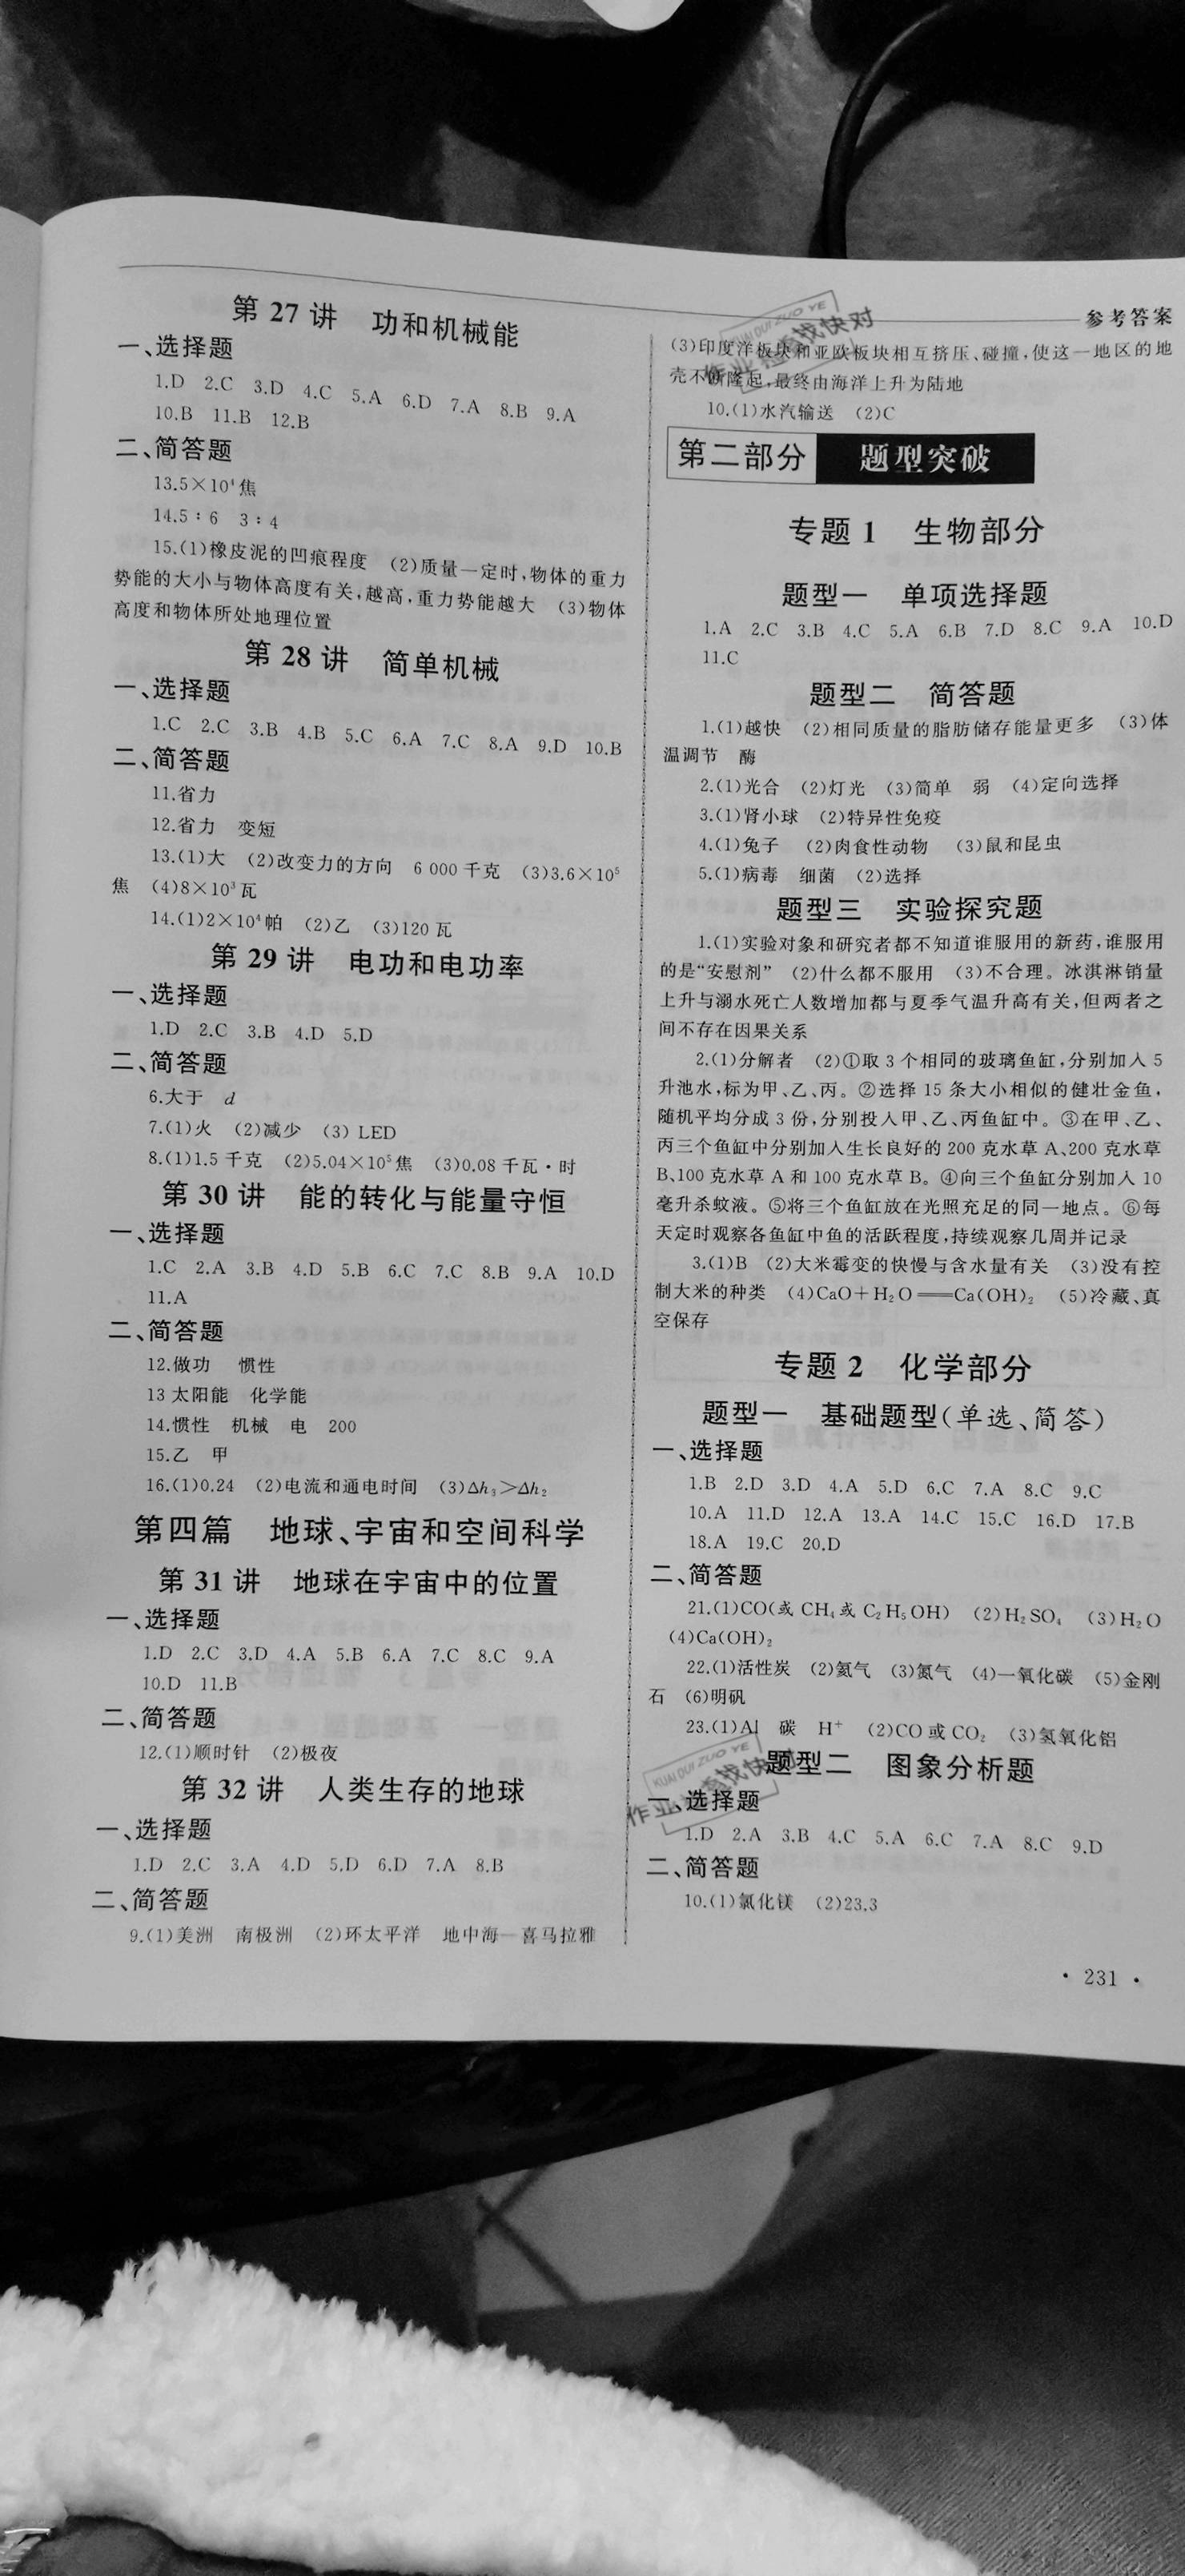 参考答案
第 27 讲 功和机械能
一、选择题
1.D 2.C 3.D 4.C 5.A 6.D 7.A 8.B 9.A
10.B 11.B 12.B
二、简答题
13.5×10⁴焦
14.5∶6 3∶4
15.(1)橡皮泥的凹痕程度 (2)质量一定时,物体的重力
势能的大小与物体高度有关,越高,重力势能越大 (3)物体
高度和物体所处地理位置
第 28 讲 简单机械
一、选择题
1.C 2.C 3.B 4.B 5.C 6.A 7.C 8.A 9.D 10.B
二、简答题
11.省力
12.省力 变短
13.(1)大 (2)改变力的方向 6 000 千克 (3)3.6×10⁵
焦 (4)8×10³瓦
14.(1)2×10⁴帕 (2)乙 (3)120 瓦
第 29 讲 电功和电功率
一、选择题
1.D 2.C 3.B 4.D 5.D
二、简答题
6.大于 d
7.(1)火 (2)减少 (3) LED
8.(1)1.5 千克 (2)5.04×10⁵焦 (3)0.08 千瓦·时
第 30 讲 能的转化与能量守恒
一、选择题
1.C 2.A 3.B 4.D 5.B 6.C 7.C 8.B 9.A 10.D
11.A
二、简答题
12.做功 惯性
13 太阳能 化学能
14.惯性 机械 电 200
15.乙 甲
16.(1)0.24 (2)电流和通电时间 (3)Δh₃>Δh₂
第四篇 地球、宇宙和空间科学
第 31 讲 地球在宇宙中的位置
一、选择题
1.D 2.C 3.D 4.A 5.B 6.A 7.C 8.C 9.A
10.D 11.B
二、简答题
12.(1)顺时针 (2)极夜
第 32 讲 人类生存的地球
一、选择题
1.D 2.C 3.A 4.D 5.D 6.D 7.A 8.B
二、简答题
9.(1)美洲 南极洲 (2)环太平洋 地中海—喜马拉雅
(3)印度洋板块和亚欧板块相互挤压、碰撞,使这一地区的地
壳不断隆起,最终由海洋上升为陆地
10.(1)水汽输送 (2)C
KUAI DUI ZUO YE
作业检查找快对
第二部分 题型突破
专题 1 生物部分
题型一 单项选择题
1.A 2.C 3.B 4.C 5.A 6.B 7.D 8.C 9.A 10.D
11.C
题型二 简答题
1.(1)越快 (2)相同质量的脂肪储存能量更多 (3)体
温调节 酶
2.(1)光合 (2)灯光 (3)简单 弱 (4)定向选择
3.(1)肾小球 (2)特异性免疫
4.(1)兔子 (2)肉食性动物 (3)鼠和昆虫
5.(1)病毒 细菌 (2)选择
题型三 实验探究题
1.(1)实验对象和研究者都不知道谁服用的新药,谁服用
的是“安慰剂” (2)什么都不服用 (3)不合理。冰淇淋销量
上升与溺水死亡人数增加都与夏季气温升高有关,但两者之
间不存在因果关系
2.(1)分解者 (2)①取 3 个相同的玻璃鱼缸,分别加入 5
升池水,标为甲、乙、丙。②选择 15 条大小相似的健壮金鱼,
随机平均分成 3 份,分别投入甲、乙、丙鱼缸中。③在甲、乙、
丙三个鱼缸中分别加入生长良好的 200 克水草 A、200 克水草
B、100 克水草 A 和 100 克水草 B。④向三个鱼缸分别加入 10
毫升杀蚊液。⑤将三个鱼缸放在光照充足的同一地点。⑥每
天定时观察各鱼缸中鱼的活跃程度,持续观察几周并记录
3.(1)B (2)大米霉变的快慢与含水量有关 (3)没有控
制大米的种类 (4)CaO+H₂O══Ca(OH)₂ (5)冷藏、真
空保存
专题 2 化学部分
题型一 基础题型(单选、简答)
一、选择题
1.B 2.D 3.D 4.A 5.D 6.C 7.A 8.C 9.C
10.A 11.D 12.A 13.A 14.C 15.C 16.D 17.B
18.A 19.C 20.D
二、简答题
21.(1)CO(或 CH₄或 C₂H₅OH) (2)H₂SO₄ (3)H₂O
(4)Ca(OH)₂
22.(1)活性炭 (2)氦气 (3)氮气 (4)一氧化碳 (5)金刚
石 (6)明矾
23.(1)Al 碳 H⁺ (2)CO 或 CO₂ (3)氢氧化铝
题型二 图象分析题
KUAI DUI ZUO YE
作业检查找快对
一、选择题
1.D 2.A 3.B 4.C 5.A 6.C 7.A 8.C 9.D
二、简答题
10.(1)氯化镁 (2)23.3
· 231 ·